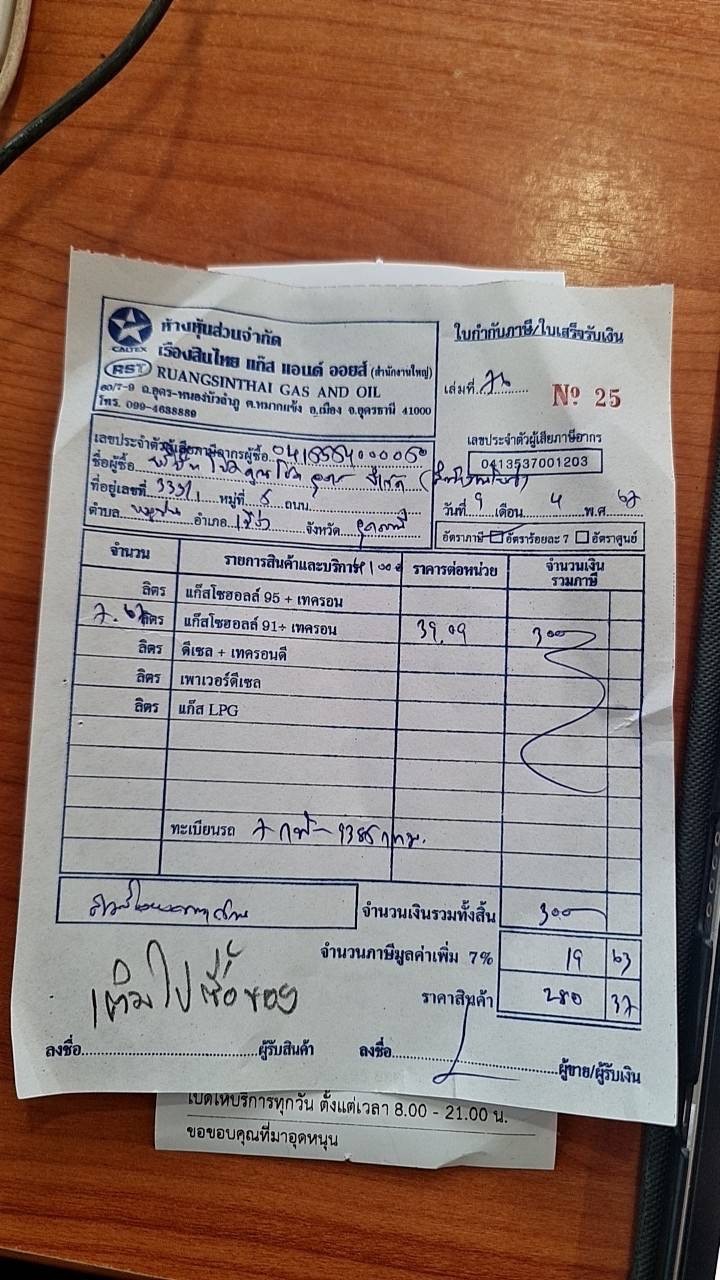 ห้างหุ้นส่วนจำกัด
เรืองสินไทย แก๊ส แอนด์ ออยส์ (สำนักงานใหญ่)
CALTEX
RST RUANGSINTHAI GAS AND OIL
60/7-9 ถ.อุดร-หนองบัวลำภู ต.หมากแข้ง อ.เมือง จ.อุดรธานี 41000
โทร. 099-4638889
ใบกำกับภาษี/ใบเสร็จรับเงิน
เล่มที่
No 25
เลขประจำตัวผู้เสียภาษีอากร
0413537001203
เลขประจำตัวผู้เสียภาษีอากรผู้ซื้อ
ชื่อผู้ซื้อ บริษัท
ที่อยู่เลขที่ 333/1 หมู่ที่ 6 ถนน
ตำบล อำเภอ เมือง จังหวัด อุดรธานี
วันที่ 9 เดือน 4 พ.ศ. 67
อัตราภาษี อัตราร้อยละ 7 อัตราศูนย์
จำนวน รายการสินค้าและบริการ ราคาต่อหน่วย จำนวนเงินรวมภาษี
ลิตร แก๊สโซฮอลล์ 95 + เทครอน
7.67 ลิตร แก๊สโซฮอลล์ 91+ เทครอน 39.09 300
ลิตร ดีเซล + เทครอนดี
ลิตร เพาเวอร์ดีเซล
ลิตร แก๊ส LPG
ทะเบียนรถ
สามร้อยบาทถ้วน จำนวนเงินรวมทั้งสิ้น 300
จำนวนภาษีมูลค่าเพิ่ม 7% 19 63
ราคาสินค้า 280 37
เติมไปซื้อของ
ลงชื่อ ผู้รับสินค้า ลงชื่อ ผู้ขาย/ผู้รับเงิน
เปิดให้บริการทุกวัน ตั้งแต่เวลา 8.00 - 21.00 น.
ขอขอบคุณที่มาอุดหนุน